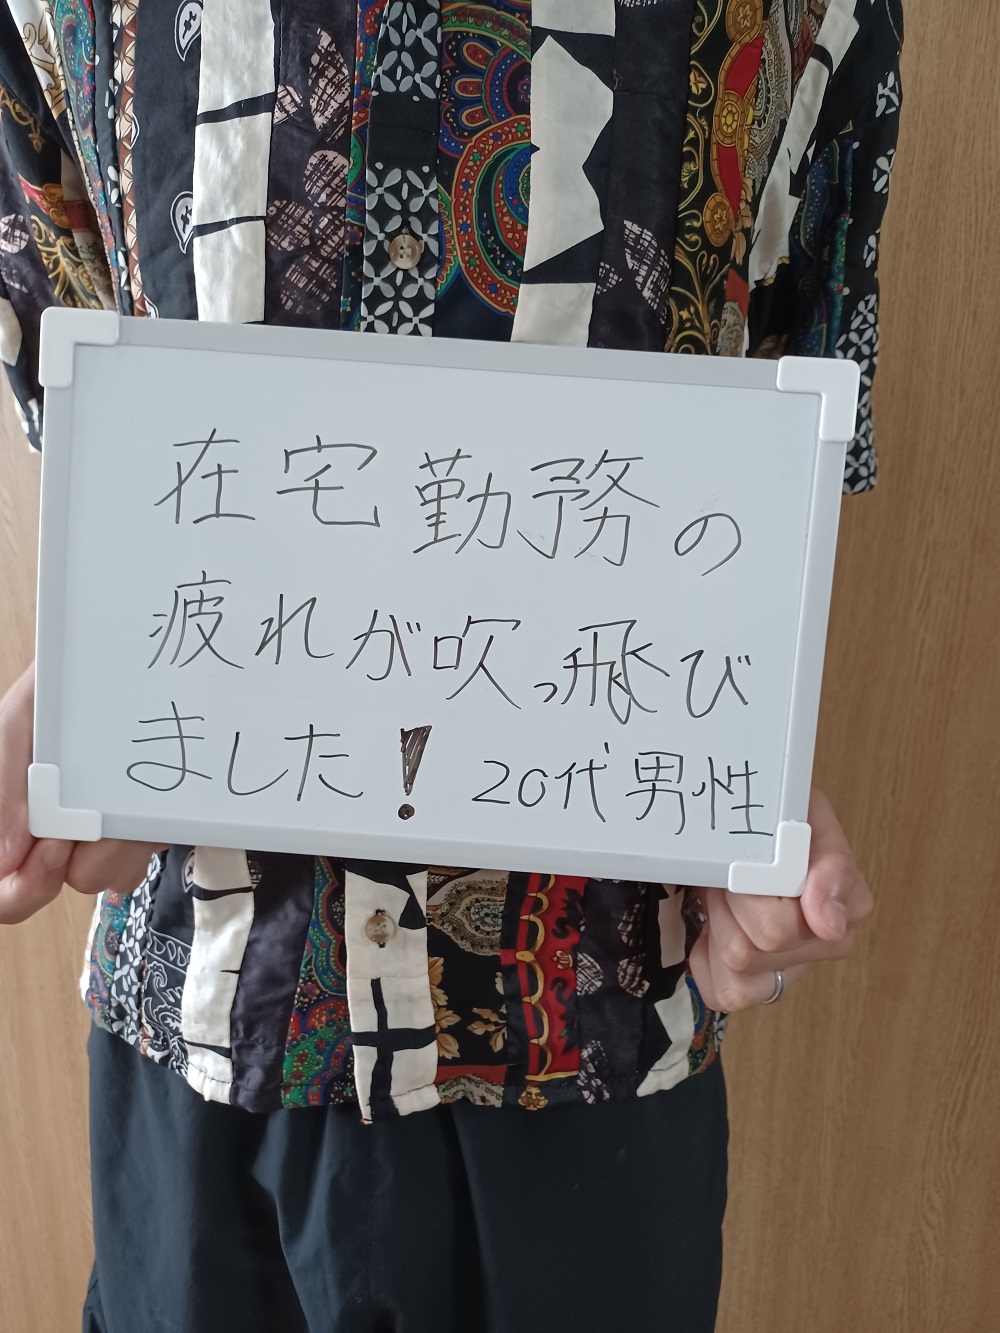 在宅勤務の
疲れが吹っ飛び
ました! 20代男性